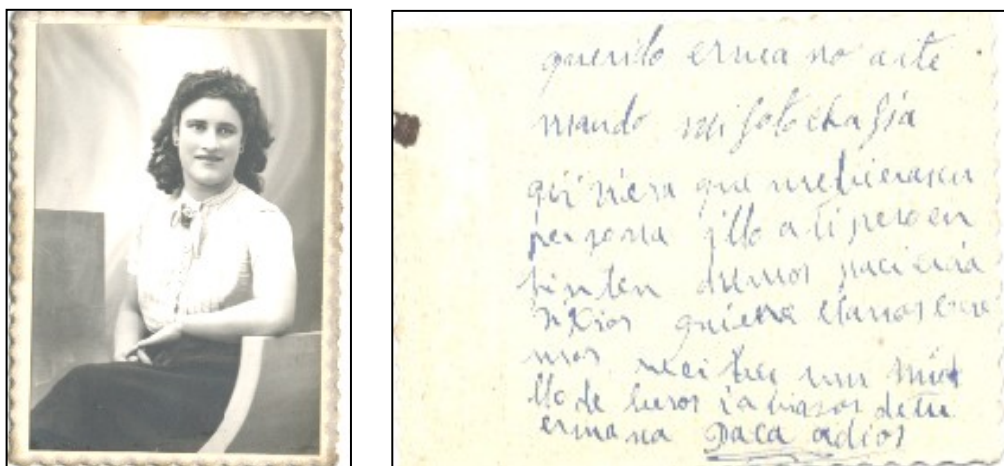 querido ermano aite
mando mi fotokrafia
quiriera que me biera en
persona illo a ti pero en
fin ten dremos paciencia
si Dios quiere
mos recibes un
llo de besos i abrazos de tu
ermana Paca adios